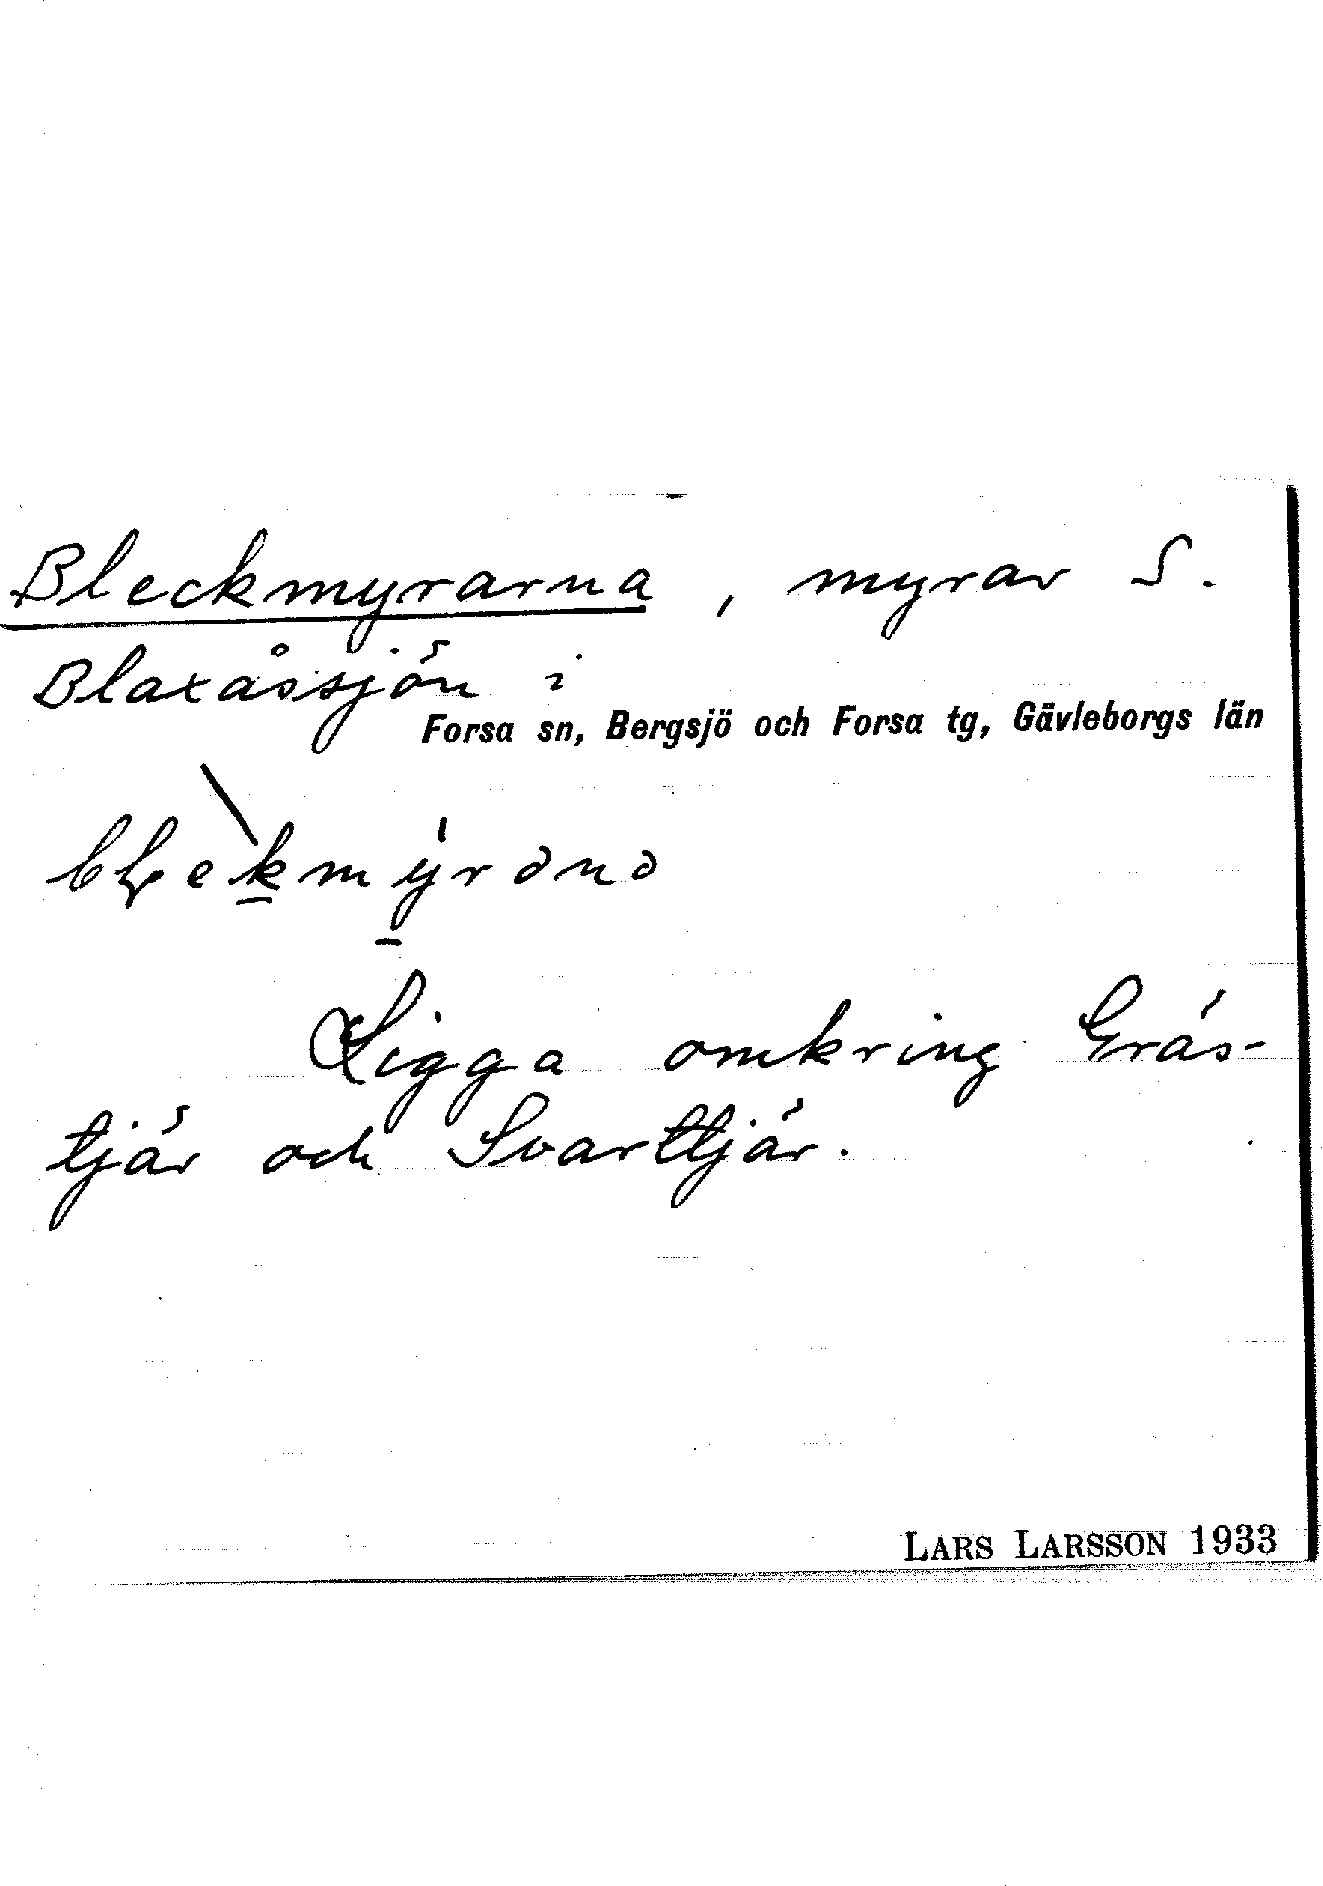 Bleckmyrarna, myrar S.
Blaxåssjön i
Forsa sn, Bergsjö och Forsa tg, Gävleborgs län
Ligga omkring Gräs-
tjär och Svarttjär.
LARS LARSSON 1933